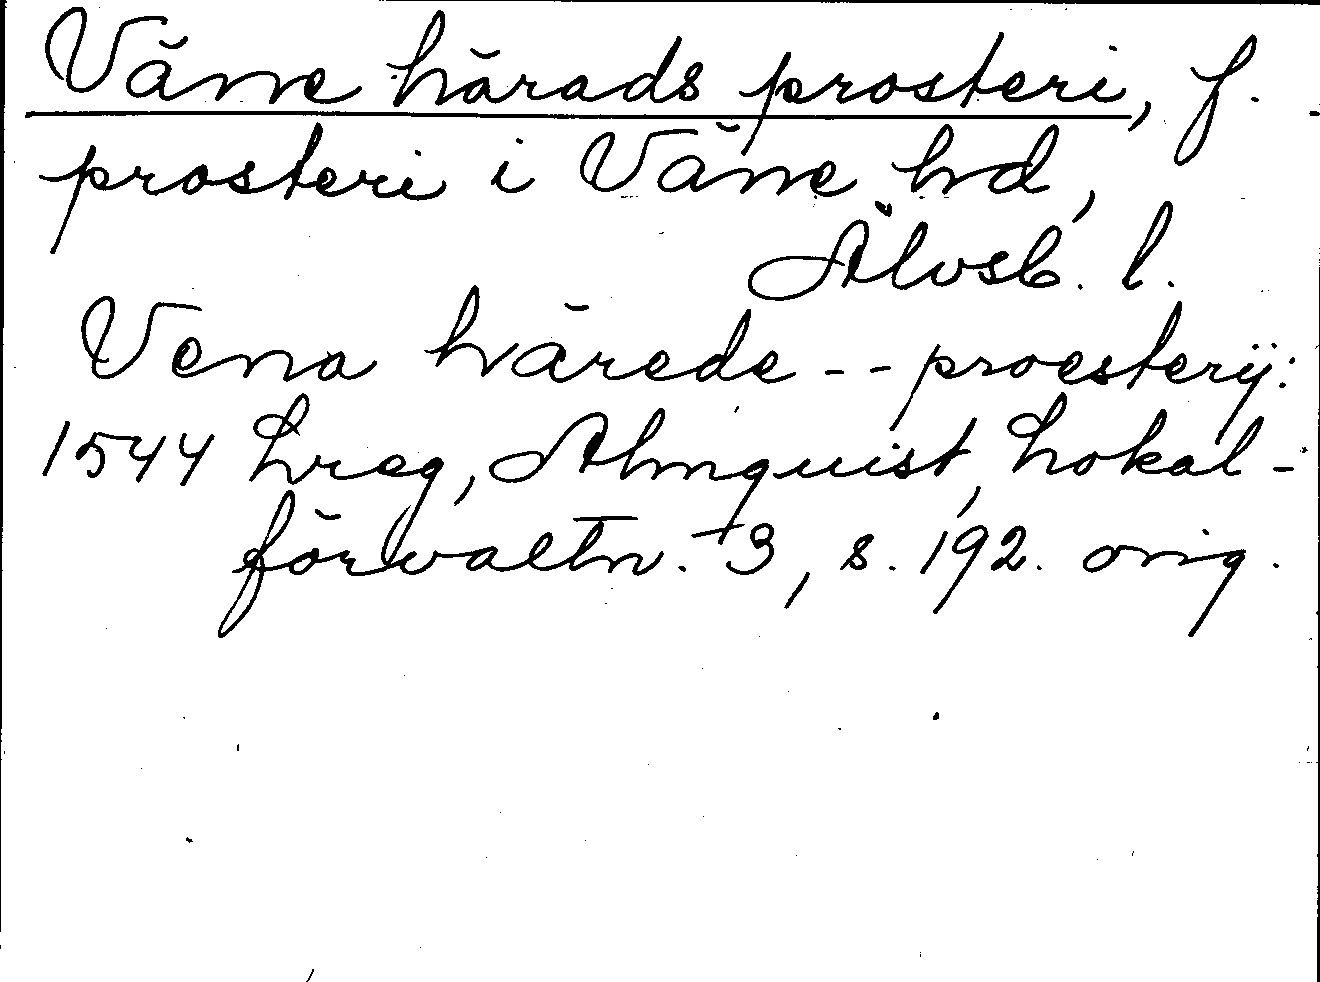 Väne härads prosteri, f.
prosteri i Väne hd,
Älvsb. l.
Vena härede -- proesterij:
1544 Lreg, Almquist, Lokal-
förvaltn. 3, s. 192. orig.